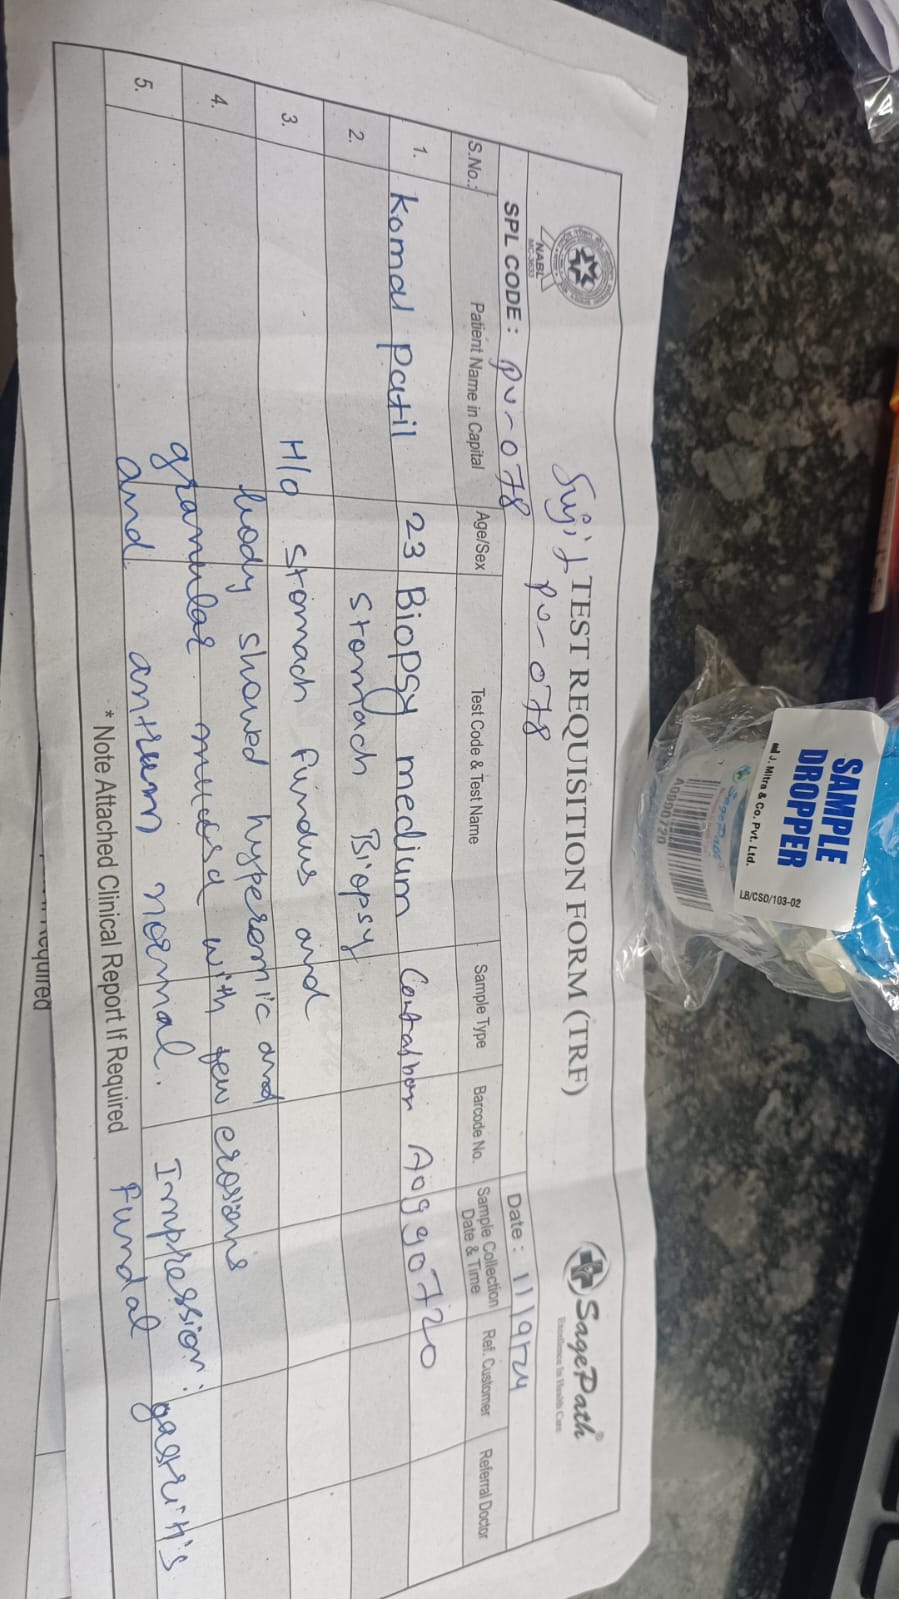 SagePath®
Excellence In Health Care
NABL
MC-3633
TEST REQUISITION FORM (TRF)
Sujit
PU-078
SPL CODE : PU-078
Date : 11/9/24
S.No.: Patient Name in Capital Age/Sex Test Code & Test Name Sample Type Barcode No. Sample Collection Date & Time Ref. Customer Referral Doctor
1. Komal Patil 23 Biopsy medium Container A0990720
2. Stomach Biopsy
3. H/o Stomach fundus and
body showed hyperemic and
4. granular mucosa with few erosions
5. and antrum normal. Impression: gastritis
Fundal
* Note Attached Clinical Report If Required
Required
SAMPLE
DROPPER
J. Mitra & Co. Pvt. Ltd.
LB/CSD/103-02
SagePath
A0990720